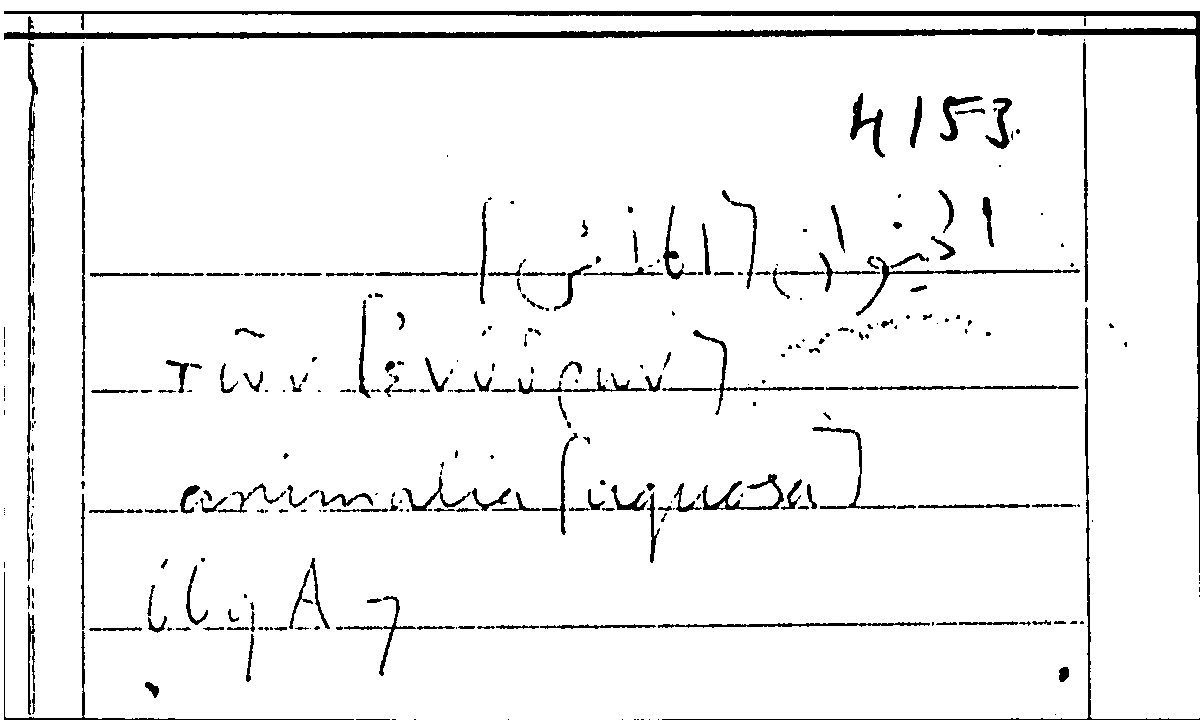 4153
الحيوان [المائي]
τῶν [ἐνύδρων]
animalia [aquosa]